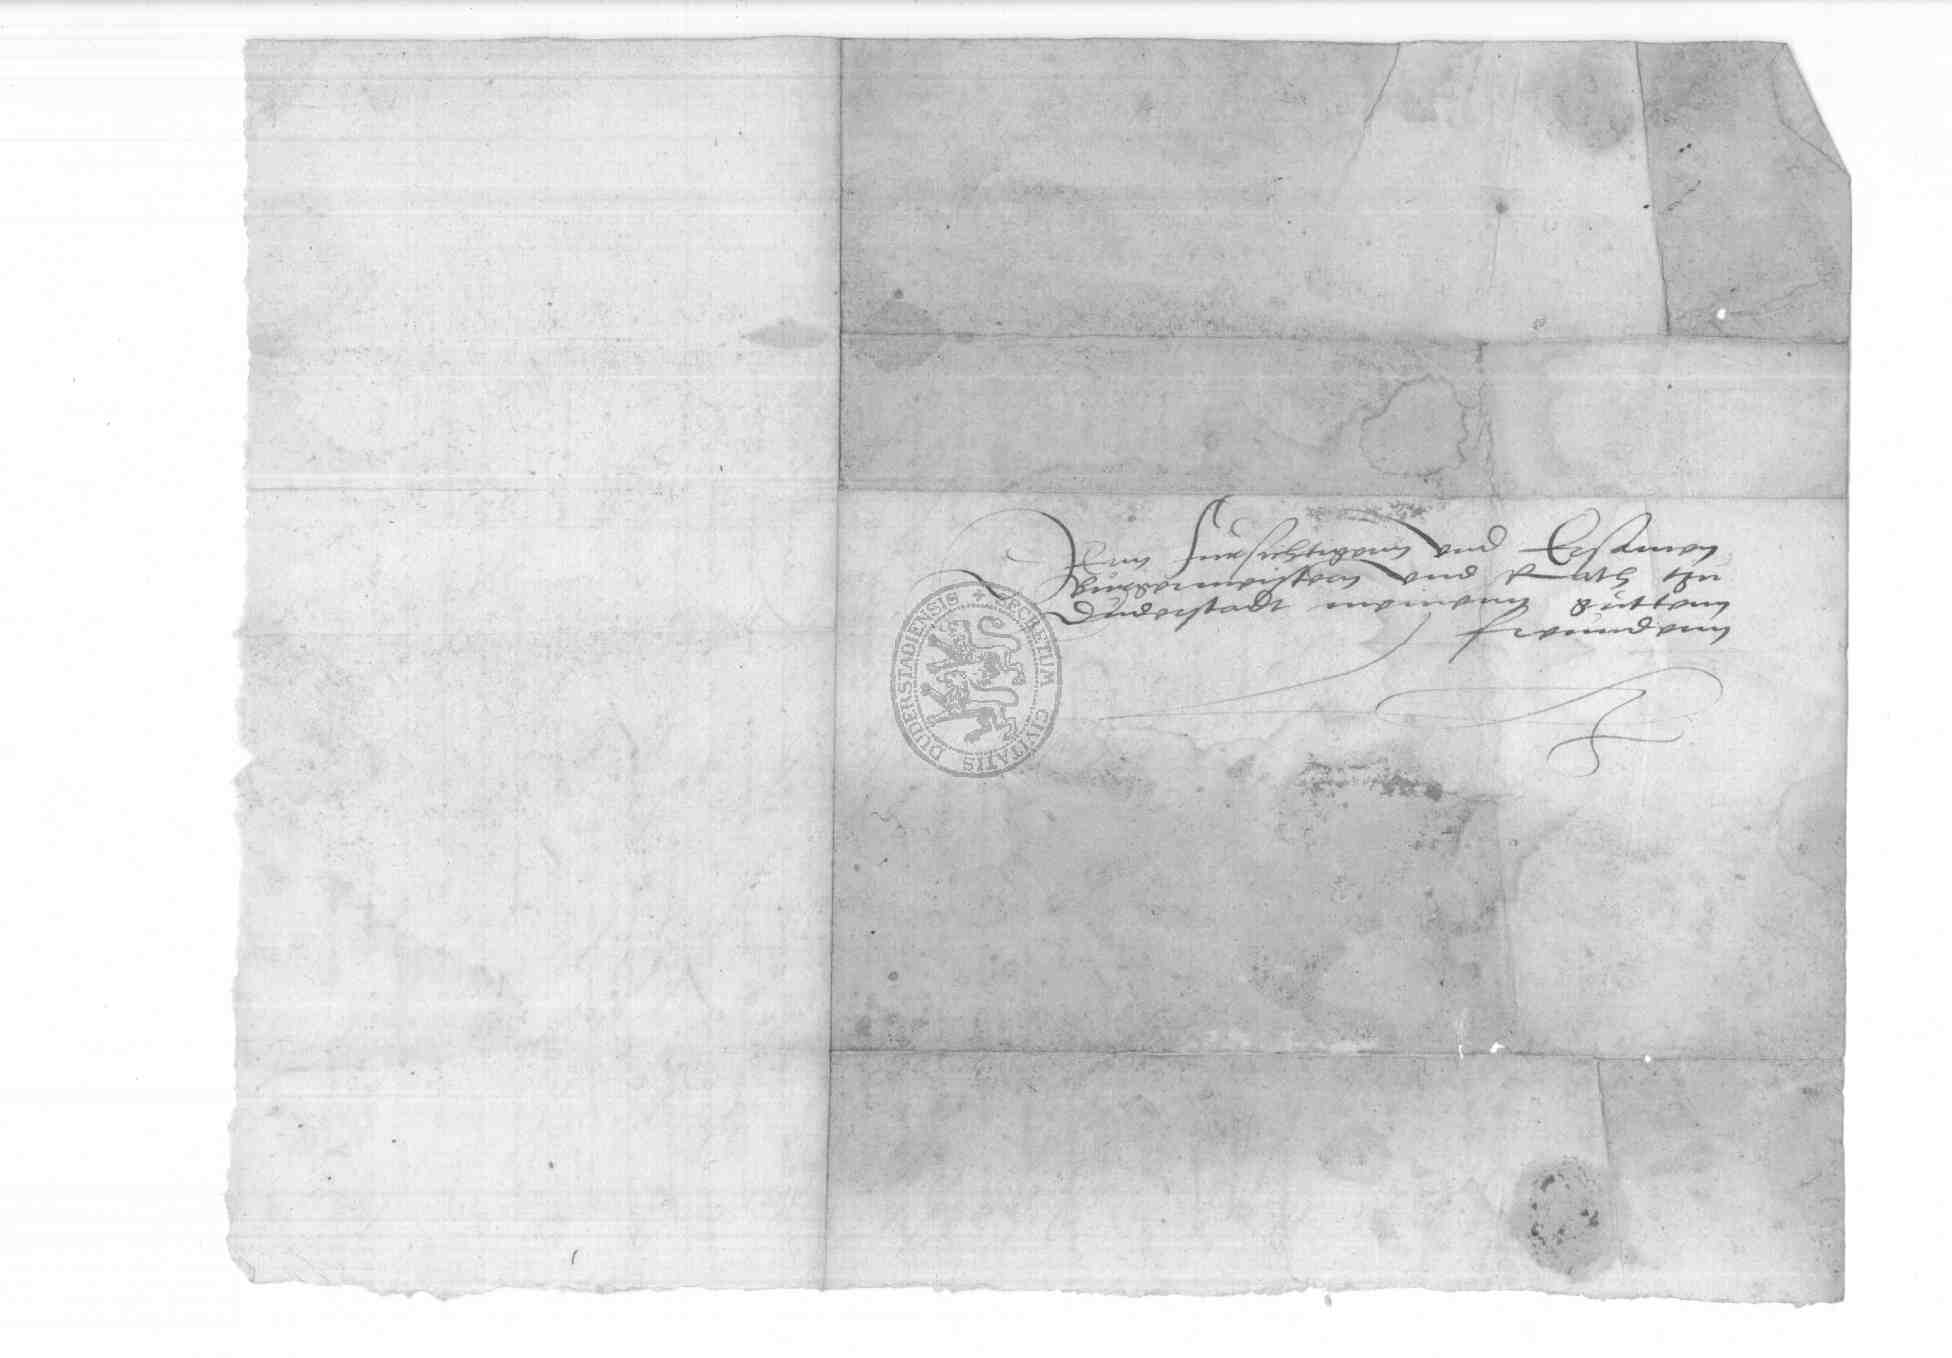 Den Fursichtigenn vnd Ersamen
Burgermeistern vnd Rath zu
Duderstadt meinenn gutten
freundenn
SECRETUM CIVITATIS DUDERSTADIENSIS